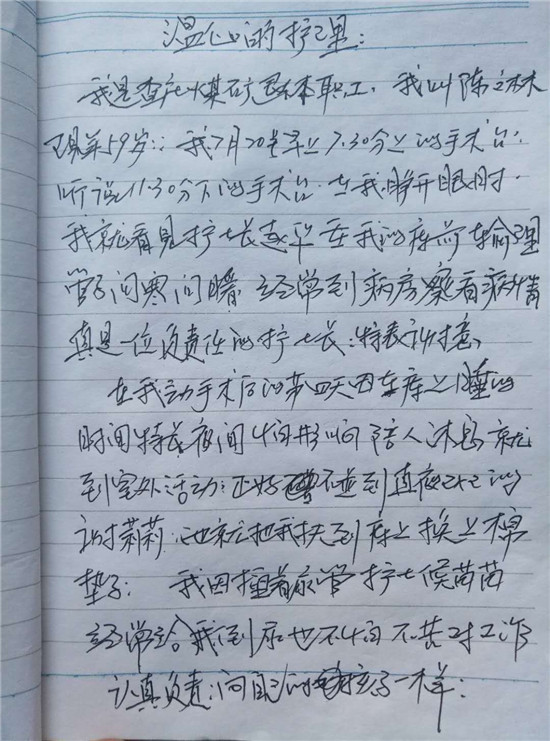 温心的护理:
我是查庄煤矿退休职工，我叫陈立林
现年59岁:: 我7月20号早上7.30分上的手术台:
听说11.30分下的手术台. 在我睁开眼时.
我就看见护士长赵华在我的床前在输理
管子问寒问暖. 经常到病房察看病情
真是一位负责任的护士长:特表谢意、
在我动手术后的第四天因在床上睡的
时间特长夜间怕影响陪人沐息就
到室外活动:正好碰到值夜班的
谢莉莉.她就把我扶到床上换上棉
垫子: 我因插着尿管护士侯苗苗
经常给我倒尿也不怕不其对工作
认真负责:问自己的孩子一样: